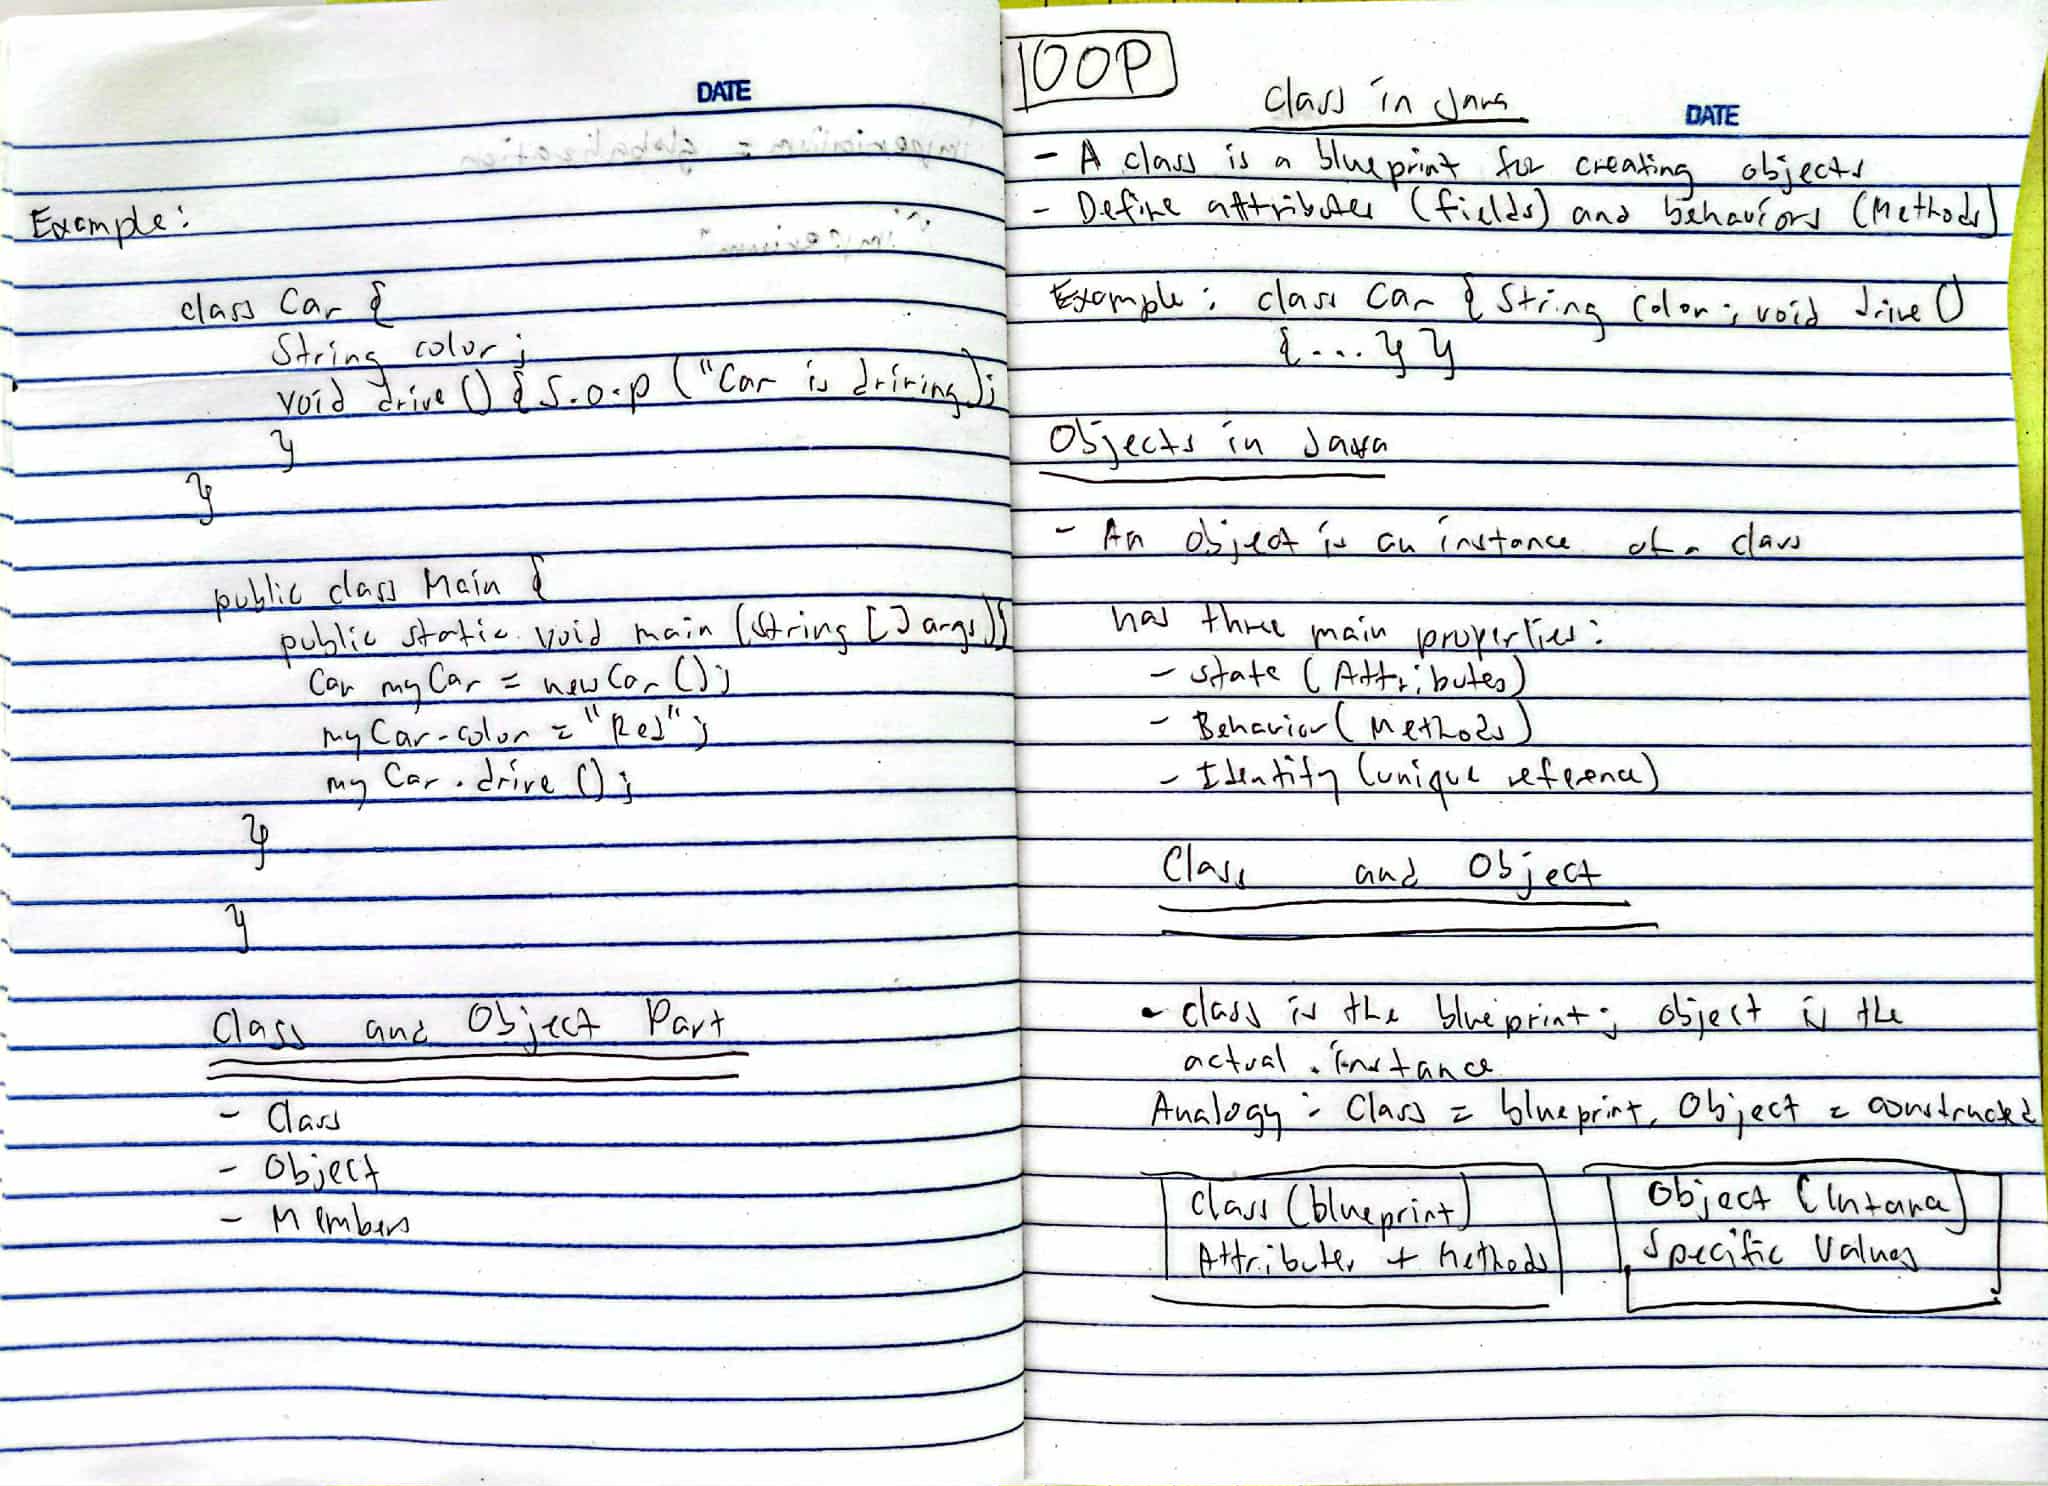 DATE
Example:
class Car {
String color;
void drive () { S.o.p ("Car is driving);
}
}
public class Main {
public static void main (String [] args) {
Car myCar = new Car ();
myCar.color = "Red";
my Car.drive ();
}
}
Class and Object Part
- Class
- Object
- Members
OOP
class in Java
DATE
- A class is a blueprint for creating objects
- Define attributes (fields) and behaviors (Methods)
Example: class Car { String color; void drive ()
{... } }
Objects in Java
- An object is an instance of a class
has three main properties:
- state (Attributes)
- Behavior (Methods)
- Identity (unique reference)
Class and Object
- class is the blueprint; object is the
actual instance
Analogy: Class = blueprint, Object = constructed
Class (blueprint)
Attributes + Methods
Object (Intance)
Specific Values